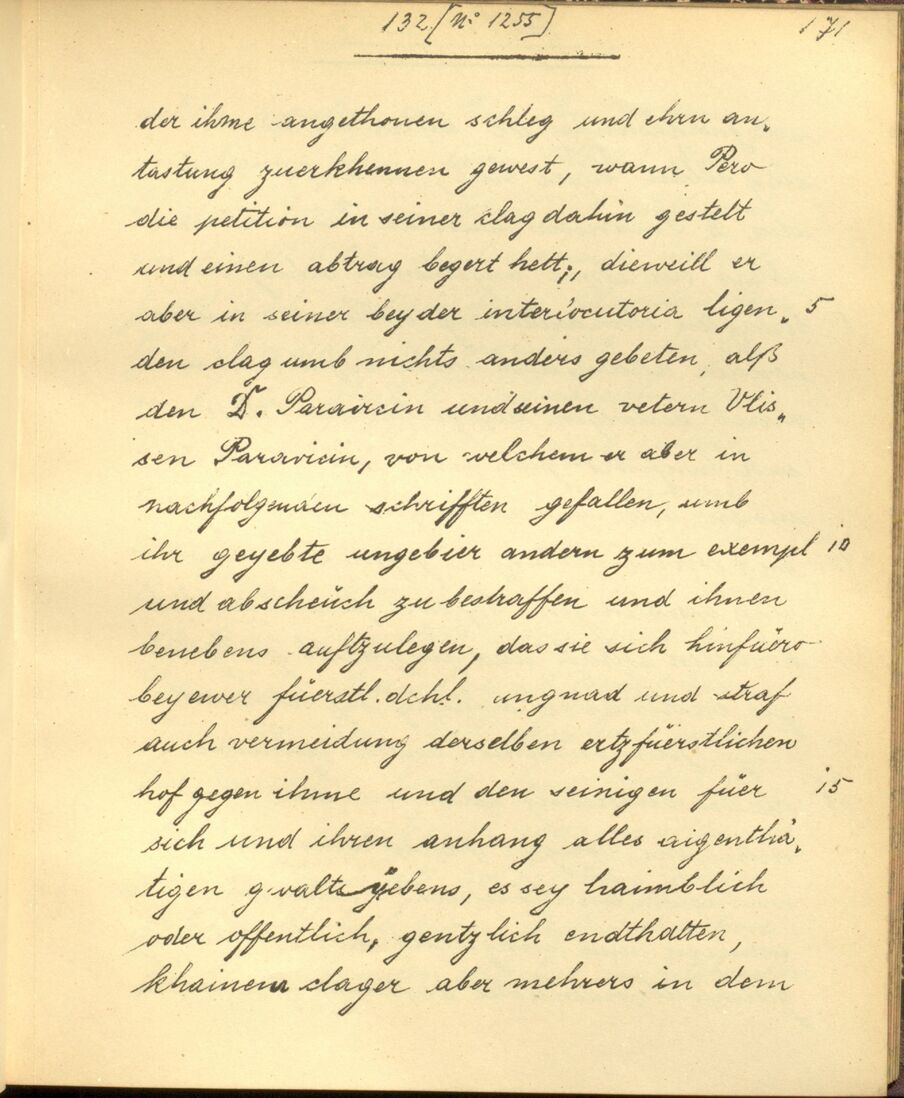 132 [No 1255]
171
der ihme angethonen schleg und ehrn an„
tastung zuerkhennen gewest, wann Pero
die petition in seiner clag dahin gestelt
und einen abtrag begert hett;, dieweill er
aber in seiner bey der interlocutoria ligen„ 5
den clag umb nichts anders gebeten, alß
den D. Paravicin und seinen vetern Vlis„
sen Paravicin, von welchem er aber in
nachfolgenden schrifften gefallen, umb
ihr geyebte ungebier andern zum exempl 10
und abscheüch zu bestraffen und ihnen
benebens auftzulegen, das sie sich hinfüero
bey ewer füerstl. dchl. ungnad und straf
auch vermeidung derselben ertzfüerstlichen
hof gegen ihme und den seinigen füer 15
sich und ihren anhang alles aigenthä„
tigen gvalts yebens, es sey haimblich
oder offentlich, gentzlich endthalten,
khainem clager aber mehrers in dem